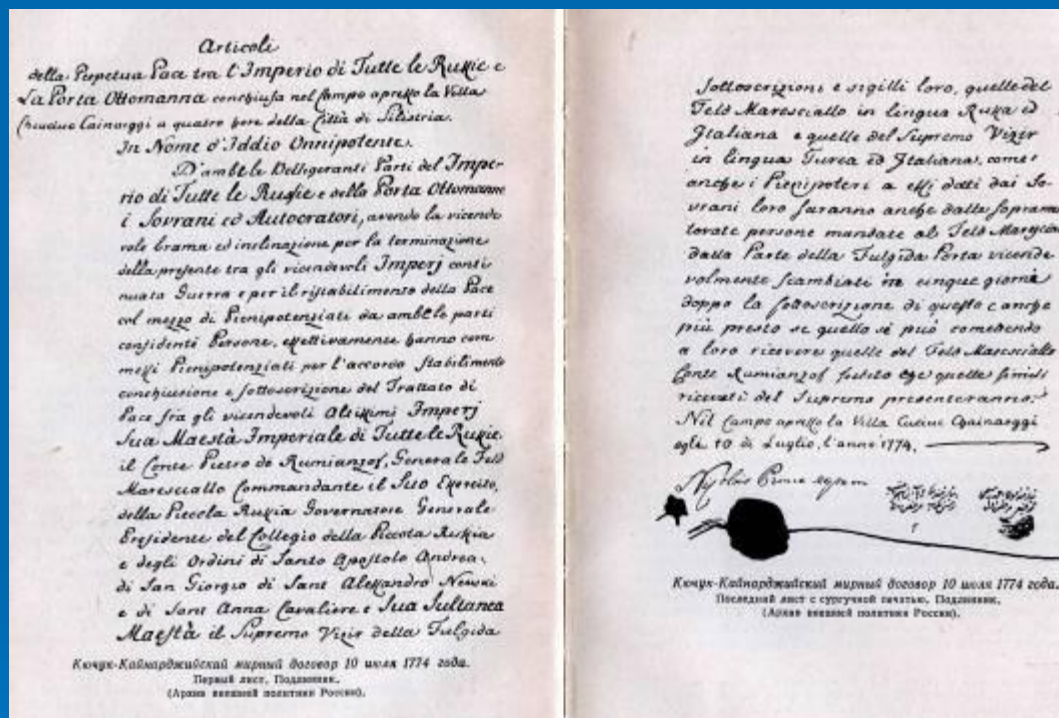 Articoli
della Perpetua Pace tra l'Imperio di Tutte le Russie e
La Porta Ottomanna conchiusa nel Campo apresso la Villa
Cainarggi a quatro hore della Città di Silistria.
In Nome d'Iddio Onnipotente.
D'ambele Belligeranti Parti del Impe-
rio di Tutte le Russie e della Porta Ottomanna
i Sovrani ed Autocratori, avendo la vicende
vole brama ed inclinazione per la terminazione
della presente tra gli vicendevoli Imperj conti
nuata Guerra e per il ristabilimento della Pace
col mezzo di Plenipotenziati da ambele parti
confidenti Persone, effettivamente hanno com
messi Plenipotenziati per l'accordo stabilimento
conchiusione e sottoscrizione del Trattato di
Pace fra gli vicendevoli Altissimi Imperj
Sua Maestà Imperiale di Tutte le Russie
il Conte Pietro de Rumianzof, Generale Feld
Maresciallo Commandante il Suo Esercito,
della Piccola Russia Governatore Generale
Presidente del Collegio della Piccola Russia
e degli Ordini di Santo Apostolo Andrea,
di San Giorgio di Sant Alessandro Newski
e di Sant Anna Cavaliere e Sua Sultanea
Maestà il Supremo Vizir della Fulgida
Кючук-Кайнарджийский мирный договор 10 июля 1774 года.
Первый лист, Подлинник.
(Архив внешней политики России).
Sottoscrizioni e sigilli loro, quelle del
Feld Maresciallo in lingua Russa ed
Italiana e quelle del Supremo Vizir
in lingua Turca ed Italiana, come
anche i Plenipoteri a essi dati dai So-
vrani loro saranno anche dalle sopram
tovate persone mandate al Feld
dalla Parte della Fulgida Porta vicende
volmente scambiati in cinque giorni
doppo la sottoscrizione di questo e anche
più presto se quello si può
a loro ricevere quelle del Feld Maresciallo
Conte Rumianzof che quelle simili
ricevuti del Supremo presenteranno.
Nel Campo apresso la Villa Cainarggi
agli 10 di Luglio, l'anno 1774,
Кючук-Кайнарджийский мирный договор 10 июля 1774 года.
Последний лист с сургучной печатью, Подлинник.
(Архив внешней политики России).